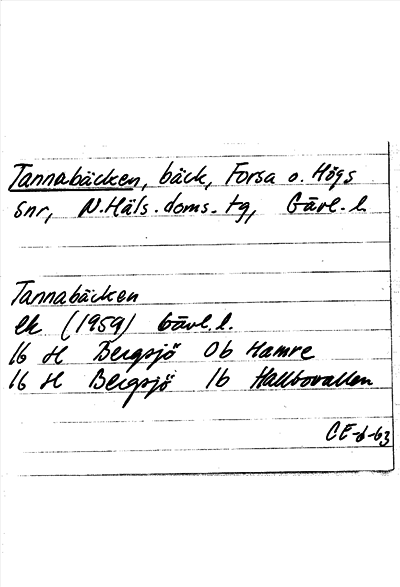 Tannabäcken, bäck, Forsa o. Högs
snr, N. Häls. doms. tg, Gävl. l.
Tannabäcken
ek (1959) Gävl. l.
16 H Bergsjö 0b Hamre
16 H Bergsjö 1b Hallbovallen
CE-6-63